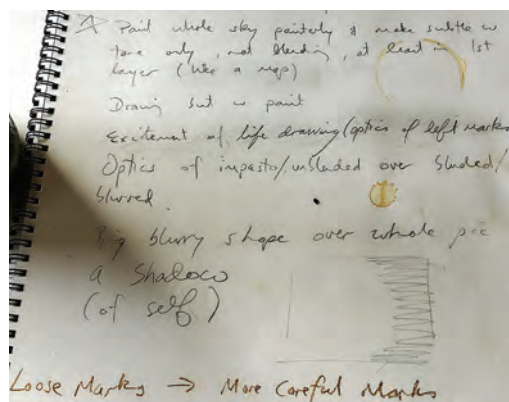 Paint whole sky painterly & make subtle w
tone only, not blending, at least in 1st
layer (like a map)
Drawing but w paint
Excitement of life drawing (optics of left marks
Optics of impasto/unblended over blended/
blurred.
Big blurry shape over whole pic
a shadow
(of self)
Loose Marks → More Careful Marks